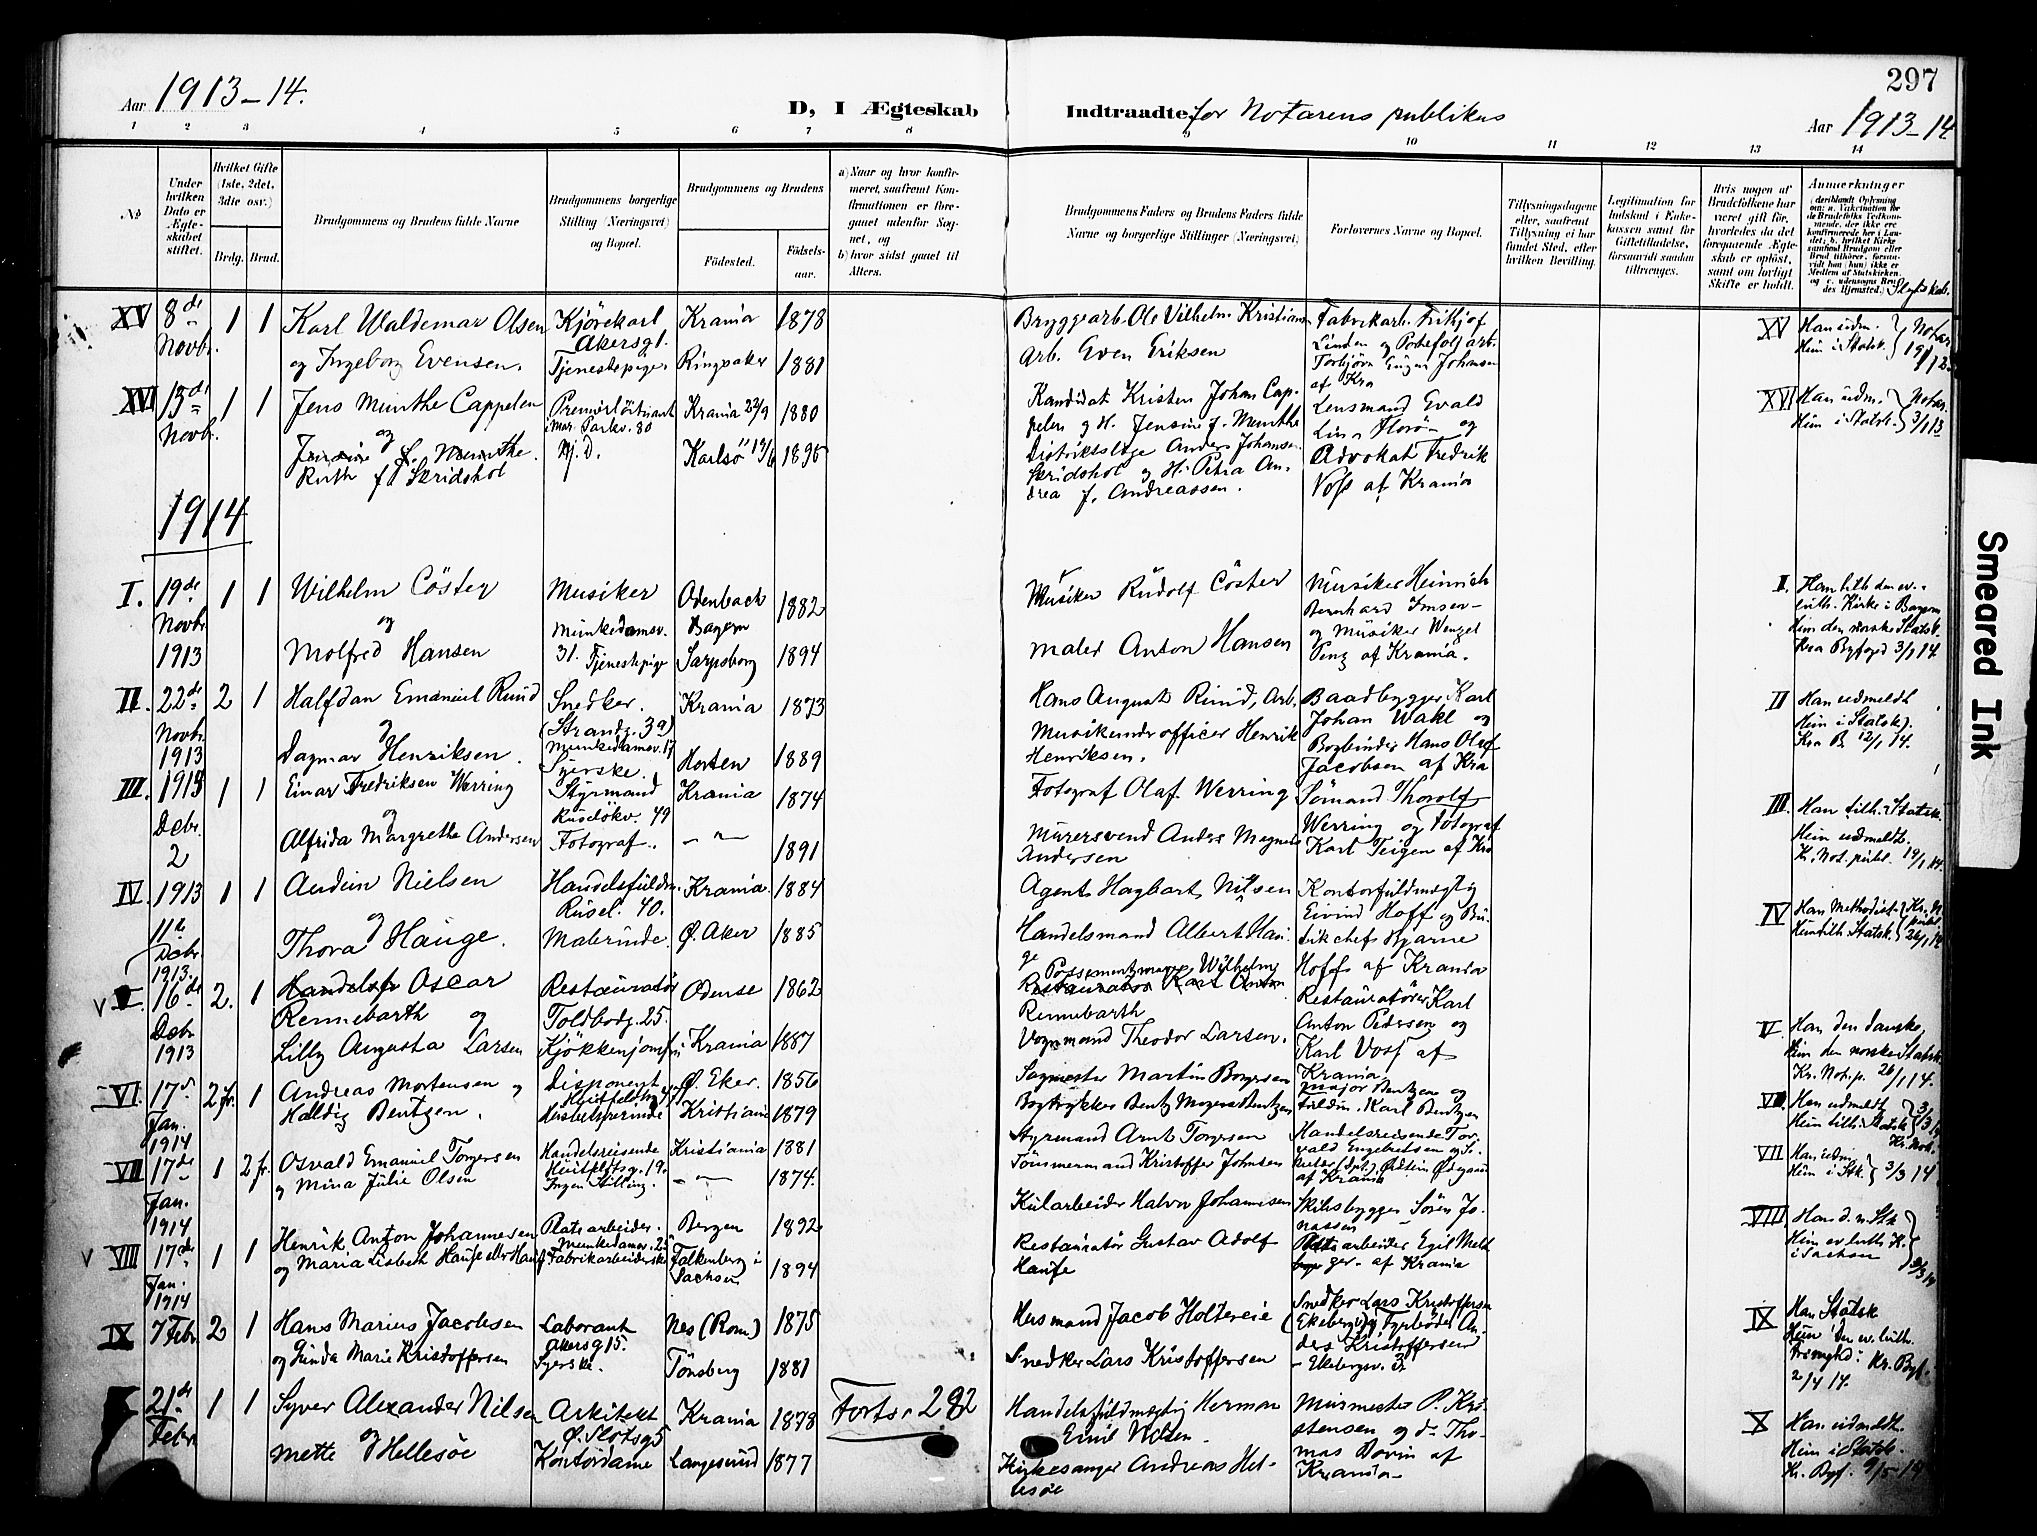 297
Aar 1913-14.
D, I Ægteskab Indtraadte for Notarens publikus
Aar 1913-14
1 2 3 4 5 6 7 8 9 10 11 12 13 14
No
Under hvilken Dato er Ægteskabet stiftet.
Hvilket Gifte (1ste, 2det, 3die osv.)
Brdg. Brud.
Brudgommens og Brudens fulde Navne
Brudgommens borgerlige Stilling (Næringsvei) og Bopæl.
Brudgommens og Brudens
Fødested. Fødselsaar.
a) Naar og hvor konfirmeret, saafremt Konfirmationen er foregaaet udenfor Sognet, og
b) hvor sidst gaaet til Alters.
Brudgommens Faders og Brudens Faders fulde Navne og borgerlige Stillinger (Næringsvei)
Forlovernes Navne og Bopæl.
Tillysningsdagene eller, saafremt Tillysning ei har fundet Sted, efter hvilken Bevilling.
Legitimation for Indskud i Enkekassen samt for Giftetilladelse, forsaavidt saadan tiltrænges.
Hvis nogen af Brudefolkene har været gift før, hvorledes da det foregaaende Ægteskab er opløst, samt om lovligt Skifte er holdt.
Anmerkninger
XV 8de Novbr. 1 1 Karl Waldemar Olsen Kjørekarl Akersg1. Krania 1878 Bryggearb. Ole Vilhelm Kristiansen Fabrikarb. Fritjof
og Ingeborg Evensen. Tjenestepige. Ringsaker 1881 Arb. Even Eriksen Linden og Portefolj arb.
Torbjørn Johnsen
af Kra
XV Han udm. Hun i Statsk.
XVI 13de Novbr. 1 1 Jens Munthe Cappelen Premierløitnant Parkv. 30 Krania 22/9 1880 Kandidat Kristen Johan Cappelen og H. Jensine f. Munthe Lensmand Evald
og
Ruth f. Skridshol Karlsø 19/6 1895 Distriktslæge Anders Johansen Skridshol og H. Petra Andrea f. Andreassen. Florø og
Advokat Fredrik
Voss af Krania
XVI Han udm. Hun i Statsk. Notar. 3/1 13
1914
I. 19de Novbr 1913 1 1 Wilhelm Cöster Musiker Odenbach Bayern 1882 Musiker Rudolf Cöster Musiker Heinrich
og Munkedamsv. 31. Bernhard
Molfred Hansen Tjenestepige Sarpsborg 1894 Maler Anton Hansen og Musiker Wenzel
Penz af Krania.
I. Han luth. den ev. luth. Kirke i Bayern
Hun den norske Statsk.
Kra Byfogd 3/1 14.
II. 22de Novbr 1913 2 1 Halfdan Emanuel Ruud Snedker. (Strandg. 3a) Krania 1873 Hans August Ruud, Arb. Baadbygger Karl
og Munkedamsv. 17 Johan Wahl og
Dagmar Henriksen. Syerske. Horten 1889 Musikunderofficer Henrik Henriksen. Bogbinder Hans Olaf
Jacobsen af Kra
II Han udmeldt
Hun i Statsk.
Kra B. 12/1 14.
III. 1913 Debr. 2 1 1 Einar Fredriksen Werring Styrmand Ruseløkv. 49 Krania 1874 Fotograf Olaf Werring Sømand Thorolf
og Werring og Fotograf
Alfrida Margrethe Andersen Fotograf. -"- 1891 Murersvend Anders Magnus Andersen Karl Teigen af Kra
III. Han tilh. Statsk.
Hun udmeldt.
K. Not. publ. 19/1 14.
IV. 1913 11te Debr 1 1 Audun Nielsen Handelsfuldm. Rusel. 40. Krania 1884 Agent Hagbart Nilsen Kontorfuldmægtig
og Eivind Hoff og Bu-
Thora Hauge. Malerinde. Ø. Aker 1885 Handelsmand Albert Hauge tikchef Bjarne
Hoff af Krania
IV Han Methodist
Hun tilh. Statsk. 26/1 14
V. 1913. 16de Debr 1913 2. 1 Oscar Rennebarth og Restauratør Toldbodg. 25. Odense 1862 Possementmager Wilhelm Rennebarth Restauratører Karl
Anton Pedersen og
Lilly Augusta Larsen Kjøkkenjomfru Krania 1887 Vognmand Theodor Larsen. Karl Voss af
Krania
V. Han den danske,
Hun den norske Statsk.
Kr. Not. p. 26/1 14.
VI. 17de Jan. 1914 2 fr. 1 Andreas Mortensen og Disponent Ø. Eker. 1856 Sagmester Martin Borgersen Major Bentzen og
Haldig Bentzen. Husbestyrerinde Kristiania 1879 Bogtrykker Bentz Mogens Bentzen Fuldm. Karl Bentzen
Han udmeldt
Hun tilh. Statsk.
VII 17de Jan. 1914 1 2 fr. Osvald Emanuel Torgersen Handelsreisende Huitfeldtsg. 19. Kristiania 1881 Styrmand Arnt Torgersen Handelsreisende Tor-
og Mina Julie Olsen Ingen Stilling. -"- 1874. Tømmermand Kristoffer Johnsen vald Engebretsen og
af Krania
VII Han udm.
Hun i Stk. 3/3 14
VIII 17de Jan. 1914 1 1 Henrik Anton Johannesen Platearbeider. Munkedamsv. 25 Bergen 1892 Kularbeider Halvor Johannesen Skibsbygger Søren Jo-
nassen
og Maria Lisbeth Haufe eller Hauf Fabrikarbeiderske Falkenberg i Sachsen 1894 Restauratør Gustav Adolf Haufe Platearbeider Egil
af Krania
VIII Han d. n. Stk
Hun ev. luth. K.
i Sachsen
IX 7 Febr. 2 1 Hans Marius Jacobsen Laborant Akersg 15. Nes (Rom.) 1875 Husmand Jacob Holtereie Snedker Lars Kristoffersen
(Ekebergv.) og Fyrbøder An-
og Gunda Marie Kristoffersen Syerske. Tönsberg 1881 Snedker Lars Kristoffersen ders Kristoffersen
- Ekebergv. 3.
IX Han Statsk
Hun den ev. luth.
frimenighed. Kr. Byf.
2/4 14.
21de Febr 1 1 Syver Alexander Nilsen Arkitekt Ø. Slotsg 5 Krania 1878 Forts. 292 Handelsfuldmægtig Herman Emil Nilsen Murmester P. Kri-
og stensen og do. Tho-
Mette Hellesöe Kontordame Langesund 1877 Kirkesanger Andreas Hellesöe mas Bovin af
Krania
X Han udmeldt.
Hun i Statsk.
Kr. Byf. 9/5 14
Smeared Ink